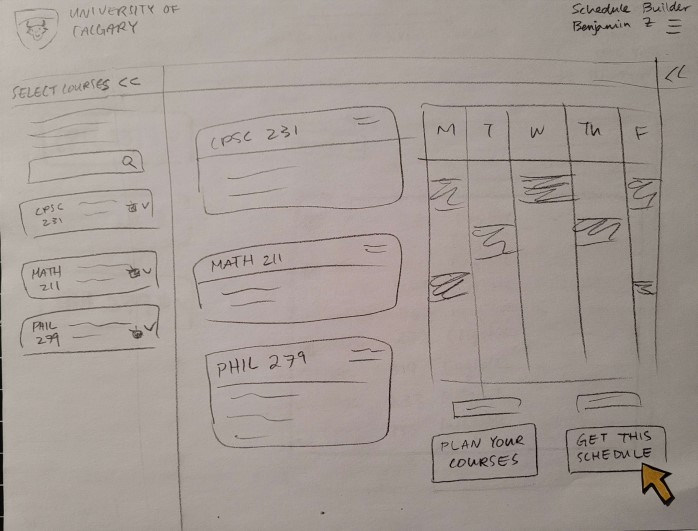 UNIVERSITY OF
CALGARY
Schedule Builder
Benjamin Z
SELECT COURSES <<
<<
Q
CPSC
231
MATH
211
PHIL
279
CPSC 231
MATH 211
PHIL 279
M T W Th F
PLAN YOUR
COURSES
GET THIS
SCHEDULE